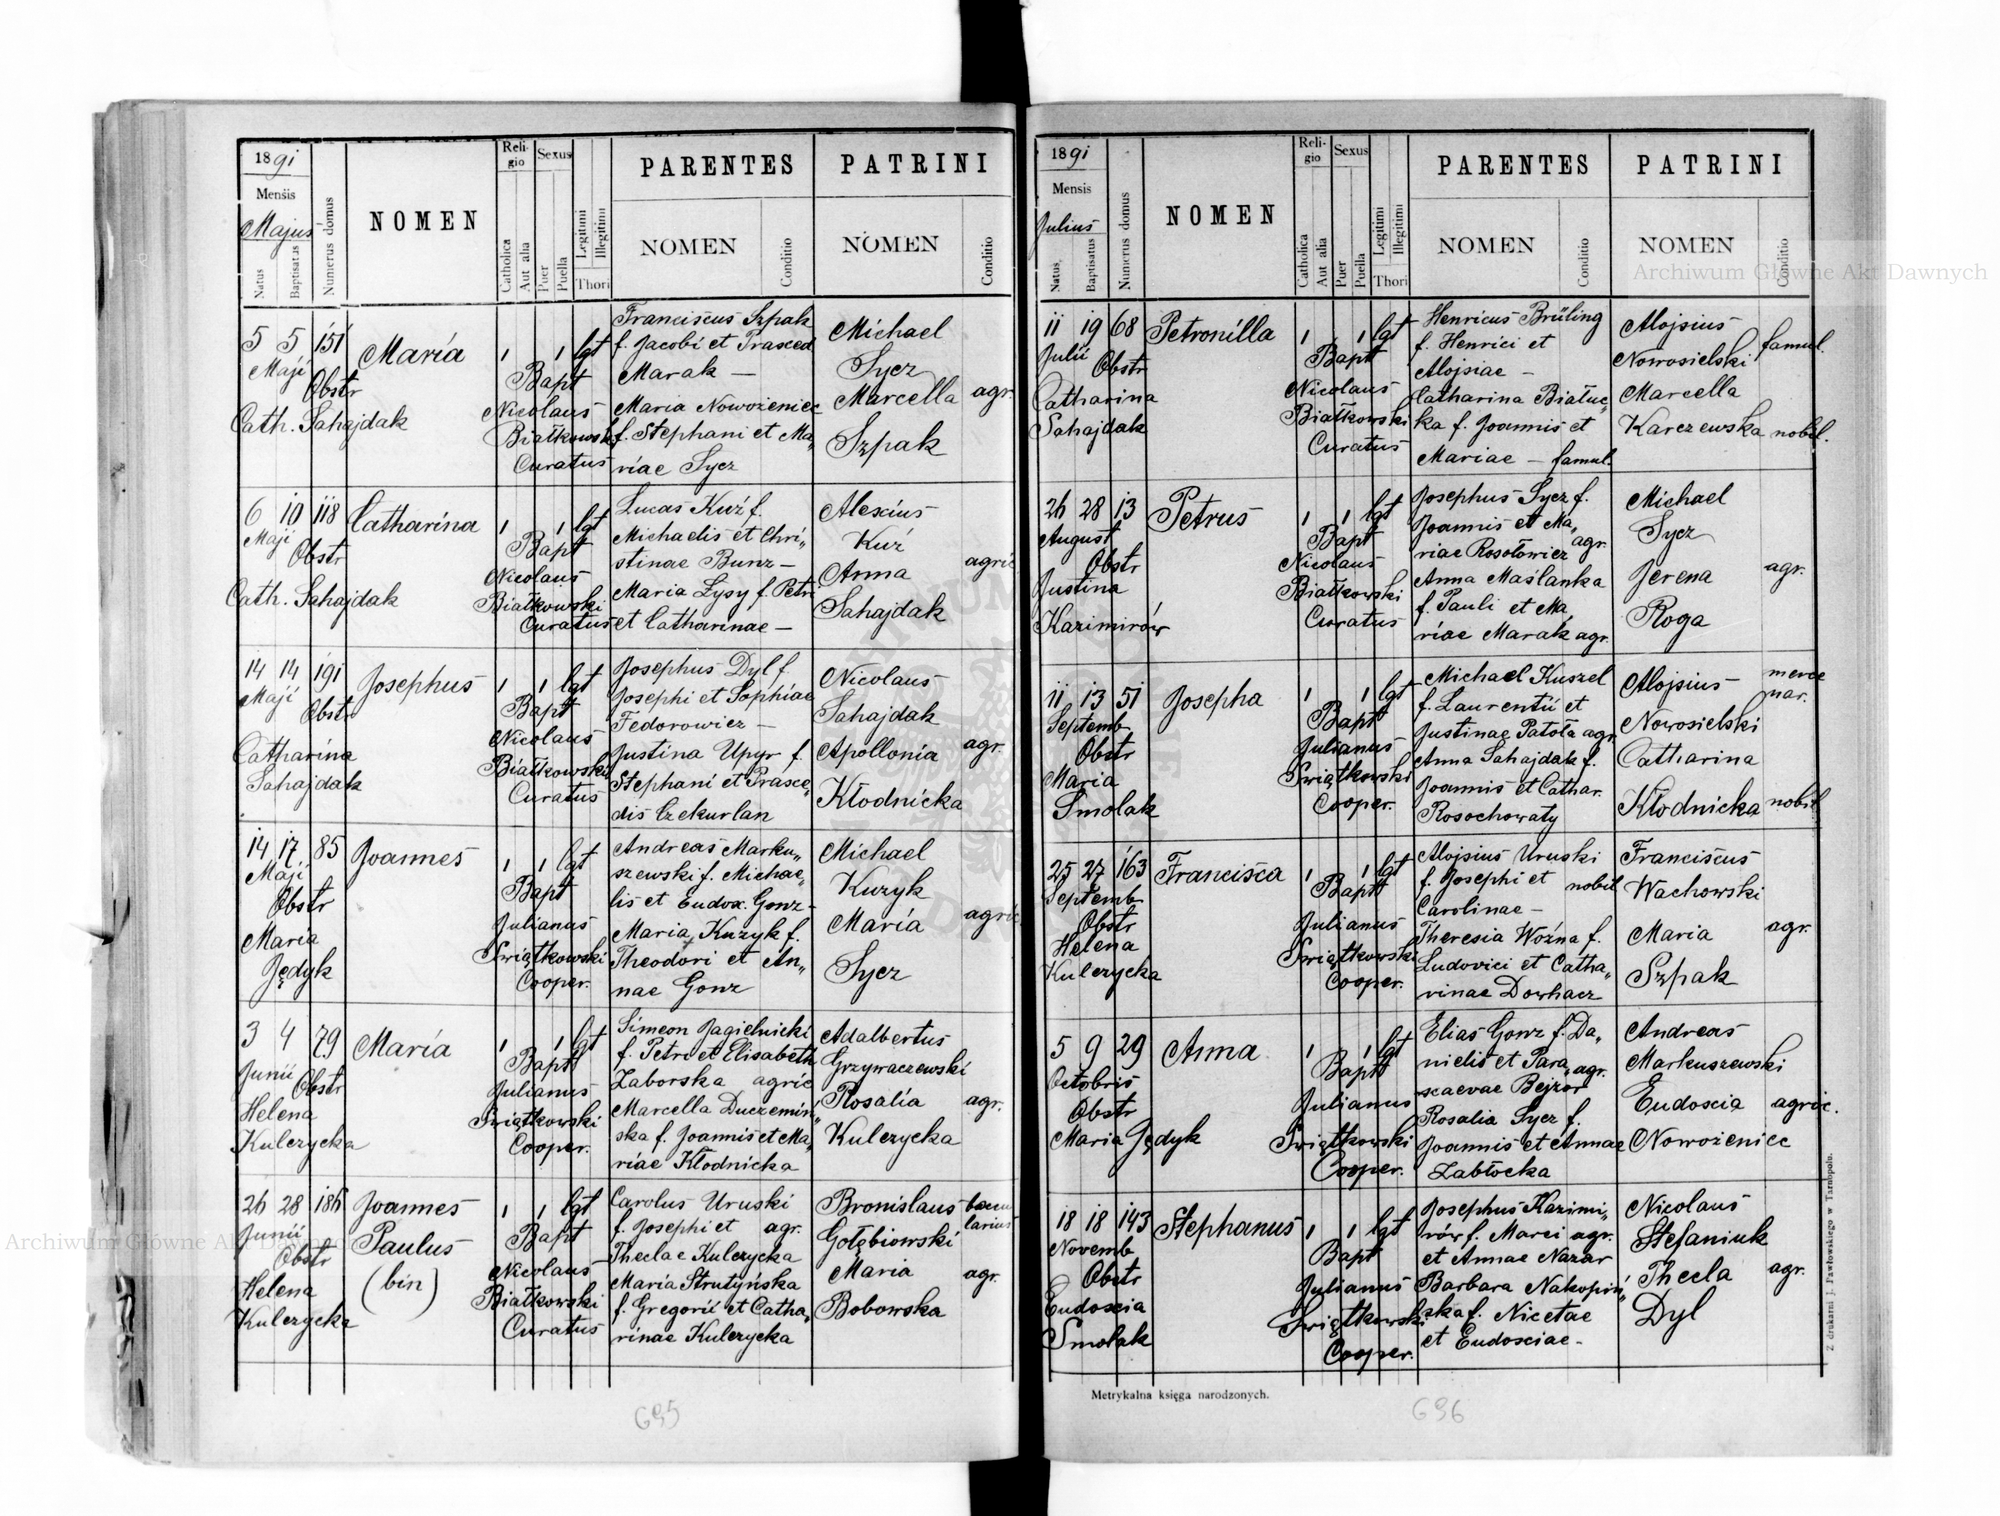 1891
Mensis
Majus
Natus
Baptisatus
Numerus domus
NOMEN
Religio
Catholica
Aut alia
Sexus
Puer
Puella
Legitimi
Illegitimi
Thori
PARENTES
NOMEN
Conditio
PATRINI
NOMEN
Conditio
5 5 151
Maji
Obstr
Cath. Sahajdak
Maria
1 1 lgt
Bapt
Nicolaus
Białkowski
Curatus
Franciscus Szpak
f. Jacobi et Prasced
Marak —
Maria Nowożeniec
f. Stephani et Ma„
riae Sycz
Michael
Sycz
Marcella agr.
Szpak
6 10 118
Maji
Obstr
Cath. Sahajdak
Catharina
1 1 lgt
Bapt
Nicolaus
Białkowski
Curatus
Lucas Kuź f.
Michaelis et Chri„
stinae Bunz —
Maria Łysy f. Petri
et Catharinae —
Alexius
Kuź
Anna agric
Sahajdak
14 14 191
Maji
Obstr
Catharina
Sahajdak
Josephus
1 1 lgt
Bapt
Nicolaus
Białkowski
Curatus
Josephus Dyl f.
Josephi et Sophiae
Fedorowicz —
Justina Upyr f.
Stephani et Prasce„
dis Czekurlan
Nicolaus
Sahajdak
Apollonia agr.
Kłodnicka
14 17 85
Maji
Obstr
Maria
Jędyk
Joannes
1 1 lgt
Bapt
Julianus
Świątkowski
Cooper.
Andreas Marku„
szewski f. Michae„
lis et Eudox. Gonz -
Maria Kuzyk f.
Theodori et An„
nae Gonz
Michael
Kuzyk
Maria agric
Sycz
3 4 79
Junii
Obstr
Helena
Kulczycka
Maria
1 1 lgt
Bapt
Julianus
Świątkowski
Cooper.
Simeon Jagielnicki
f. Petri et Elisabeth
Zaborska agric
Marcella Duczemiń„
ska f. Joannis et Ma„
riae Kłodnicka
Adalbertus
Grzywaczewski
Rosalia agr.
Kulczycka
26 28 186
Junii
Obstr
Helena
Kulczycka
Joannes
Paulus
(bin)
1 1 lgt
Bapt
Nicolaus
Białkowski
Curatus
Carolus Uruski
f. Josephi et agr.
Theclae Kulczycka
Maria Strutyńska
f. Gregorii et Catha„
rinae Kulczycka
Bronislaus
Gołębiowski
Maria agr.
Bobowska
695
1891
Mensis
Julius
Natus,
Baptisatus
Numerus domus
NOMEN
Religio
Catholica
Aut alia
Sexus
Puer
Puella
Legitimi
Illegitimi
Thori
PARENTES
NOMEN
Conditio
PATRINI
NOMEN
Conditio
11 19 68
Julii
Obstr
Catharina
Sahajdak
Petronilla
1 1 lgt
Bapt
Nicolaus
Białkowski
Curatus
Henricus Brüling
f. Henrici et
Alojsiae -
Catharina Białuc„
ka f. Joannis et
Mariae - famul.
Alojsius famul.
Nowosielski
Marcella
Karczewska nobil.
26 28 13
August
Obstr
Justina
Kazimirów
Petrus
1 1 lgt
Bapt
Nicolaus
Białkowski
Curatus
Josephus Sycz f.
Joannis et Ma„
riae Rosołowicz agr.
Anna Maślanka
f. Pauli et Ma„
riae Marak agr.
Michael
Sycz
Jerena agr.
Roga
11 13 51
Septemb
Obstr
Maria
Smolak
Josepha
1 1 lgt
Bapt
Julianus
Świątkowski
Cooper.
Michael Kuszel
f. Laurentii et
Justinae Patoła agr.
Anna Sahajdak f.
Joannis et Cathar.
Rosochowaty
Alojsius merce
nar.
Nowosielski
Catharina
Kłodnicka nobil
25 27 163
Septemb
Obstr
Helena
Kulczycka
Francisca
1 1 lgt
Bapt
Julianus
Świątkowski
Cooper.
Alojsius Uruski
f. Josephi et nobil
Carolinae -
Theresia Woźna f.
Ludovici et Catha„
rinae Dowhacz
Franciscus
Wachowski
Maria agr.
Szpak
5 9 29
Octobris
Obstr
Maria Jędyk
Anna
1 1 lgt
Bapt
Julianus
Świątkowski
Cooper.
Elias Gonz f. Da„
nielis et Para„ agr.
scaevae Bejzar
Rosalia Sycz f.
Joannis et Annae
Zabłocka
Andreas
Markuszewski
Eudoscia agric.
Nowożeniec
18 18 143
Novemb
Obstr
Eudoscia
Smolak
Stephanus
1 1 lgt
Bapt
Julianus
Świątkowski
Cooper.
Josephus Kazimi„
rów f. Marci agr.
et Annae Nazar
Barbara Nakopiń„
ska f. Nicetae
et Eudosciae -
Nicolaus
Stefaniuk
Thecla agr.
Dyl
Metrykalna księga narodzonych.
696
Z drukarni J. Pawłowskiego w Tarnopolu.
Archiwum Główne Akt Dawnych
Archiwum Główne Akt Dawnych